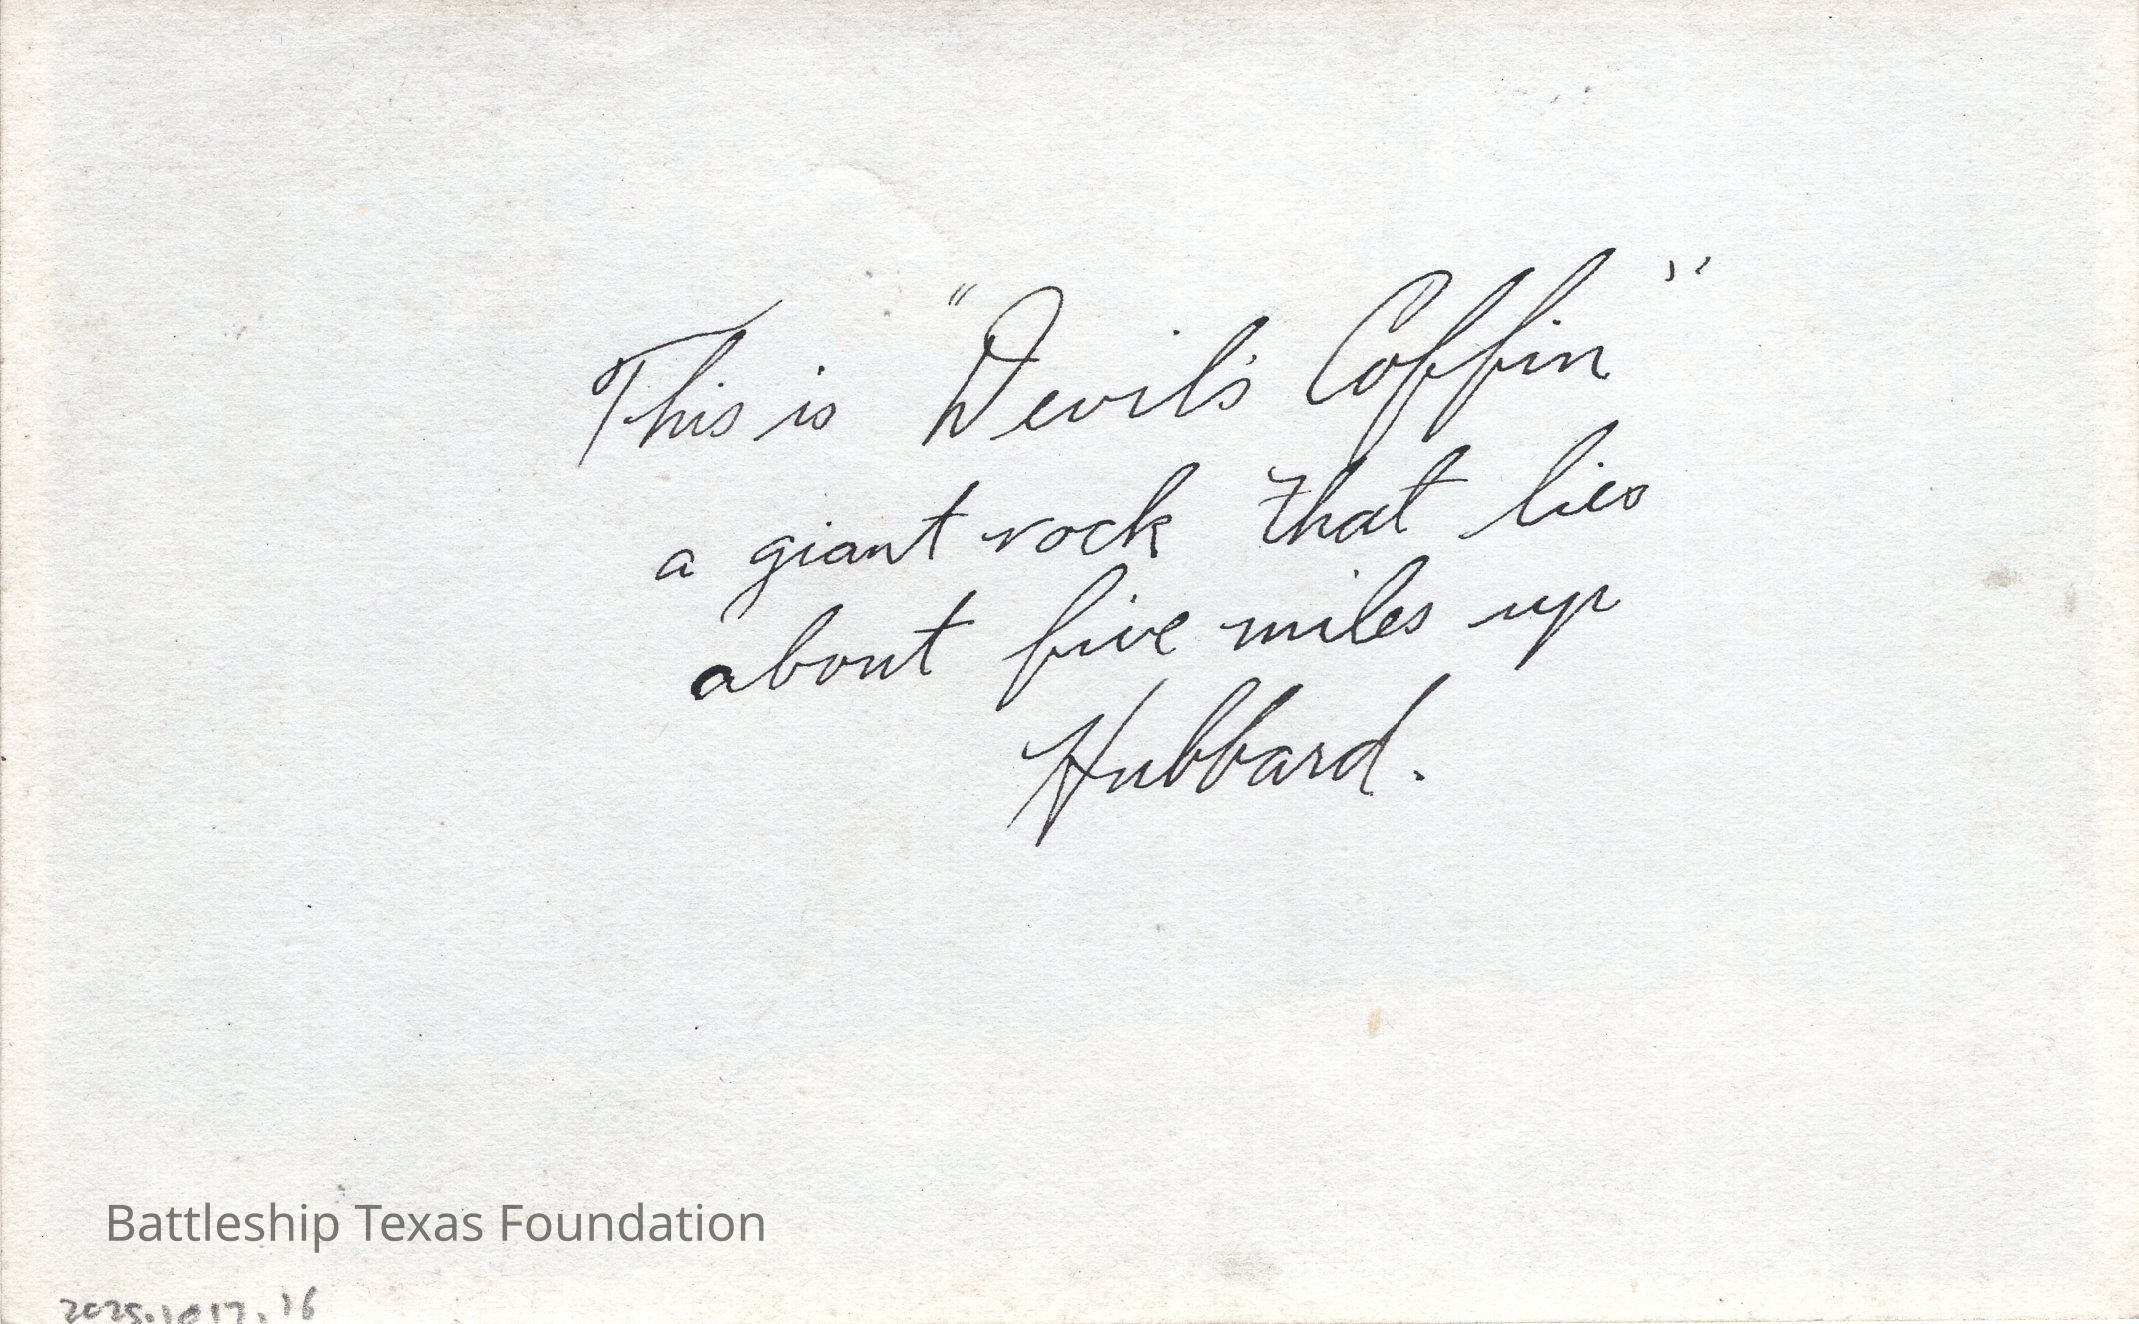 This is "Devil's Coffin"
a giant rock that lies
about five miles up
Hubbard.
Battleship Texas Foundation
2025.1017.16